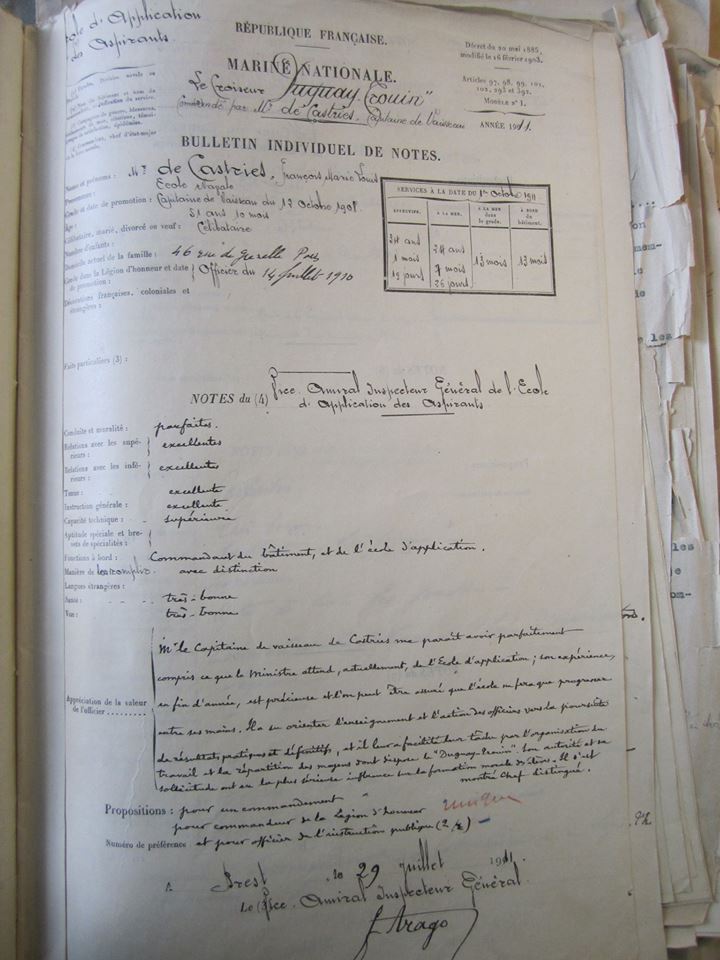 École d'Application
des Aspirants
RÉPUBLIQUE FRANÇAISE.
MARINE NATIONALE.
Décret du 20 mai 1885,
modifié le 16 février 1903.
Articles 97, 98, 99, 101,
102, 293 et 392.
MODÈLE N° 1.
ANNÉE 1911.
Le Croiseur "Duguay-Trouin"
Commandé par Mr de Castries, Capitaine de Vaisseau
BULLETIN INDIVIDUEL DE NOTES.
Noms et prénoms : Mr de Castries, François Marie Louis
Provenance : École Navale
Grade et date de promotion : Capitaine de Vaisseau du 12 Octobre 1908
Age : 51 ans 10 mois
Célibataire, marié, divorcé ou veuf : Célibataire
Nombre d'enfants :
Domicile actuel de la famille : 46 rue de Grenelle Paris
Grade dans la Légion d'honneur et date de promotion : Officier du 14 juillet 1910
Décorations françaises, coloniales et étrangères :
SERVICES À LA DATE DU 1er Octobre 1911
EFFECTIFS. À LA MER. À LA MER dans le grade. À BORD du bâtiment.
34 ans 1 mois 19 jours
24 ans 7 mois 26 jours
13 mois
13 mois
Faits particuliers (3) :
NOTES du (4) Vice-Amiral Inspecteur Général de l'École
d'Application des Aspirants
Conduite et moralité : parfaites.
Relations avec les supérieurs : excellentes
Relations avec les inférieurs : excellentes
Tenue : excellente
Instruction générale : excellente
Capacité technique : supérieure
Aptitude spéciale et brevets de spécialités :
Fonctions à bord : Commandant du bâtiment, et de l'école d'application.
Manière de les remplir : avec distinction
Langues étrangères :
Santé : très-bonne
Vue : très-bonne
Appréciation de la valeur de l'officier
Mr le Capitaine de vaisseau de Castries me paraît avoir parfaitement
compris ce que le Ministre attend, actuellement, de l'École d'application ; son expérience,
en fin d'année, est précieuse et l'on peut être assuré que l'école ne fera que progresser
entre ses mains. Il a su orienter l'enseignement et l'action des officiers vers la poursuite
de résultats pratiques et définitifs, et il leur a facilité leur tâche par l'organisation du
travail et la répartition des moyens dont dispose le "Duguay-Trouin". Son autorité et sa
sollicitude ont eu la plus sérieuse influence sur la formation morale des élèves. Il s'est
montré Chef distingué.
Propositions : pour un commandement
pour commandeur de la Légion d'honneur unique
Numéro de préférence et pour officier de l'instruction publique (2/2)
A Brest le 29 juillet 1911.
Le Vice-Amiral Inspecteur Général.
Arago